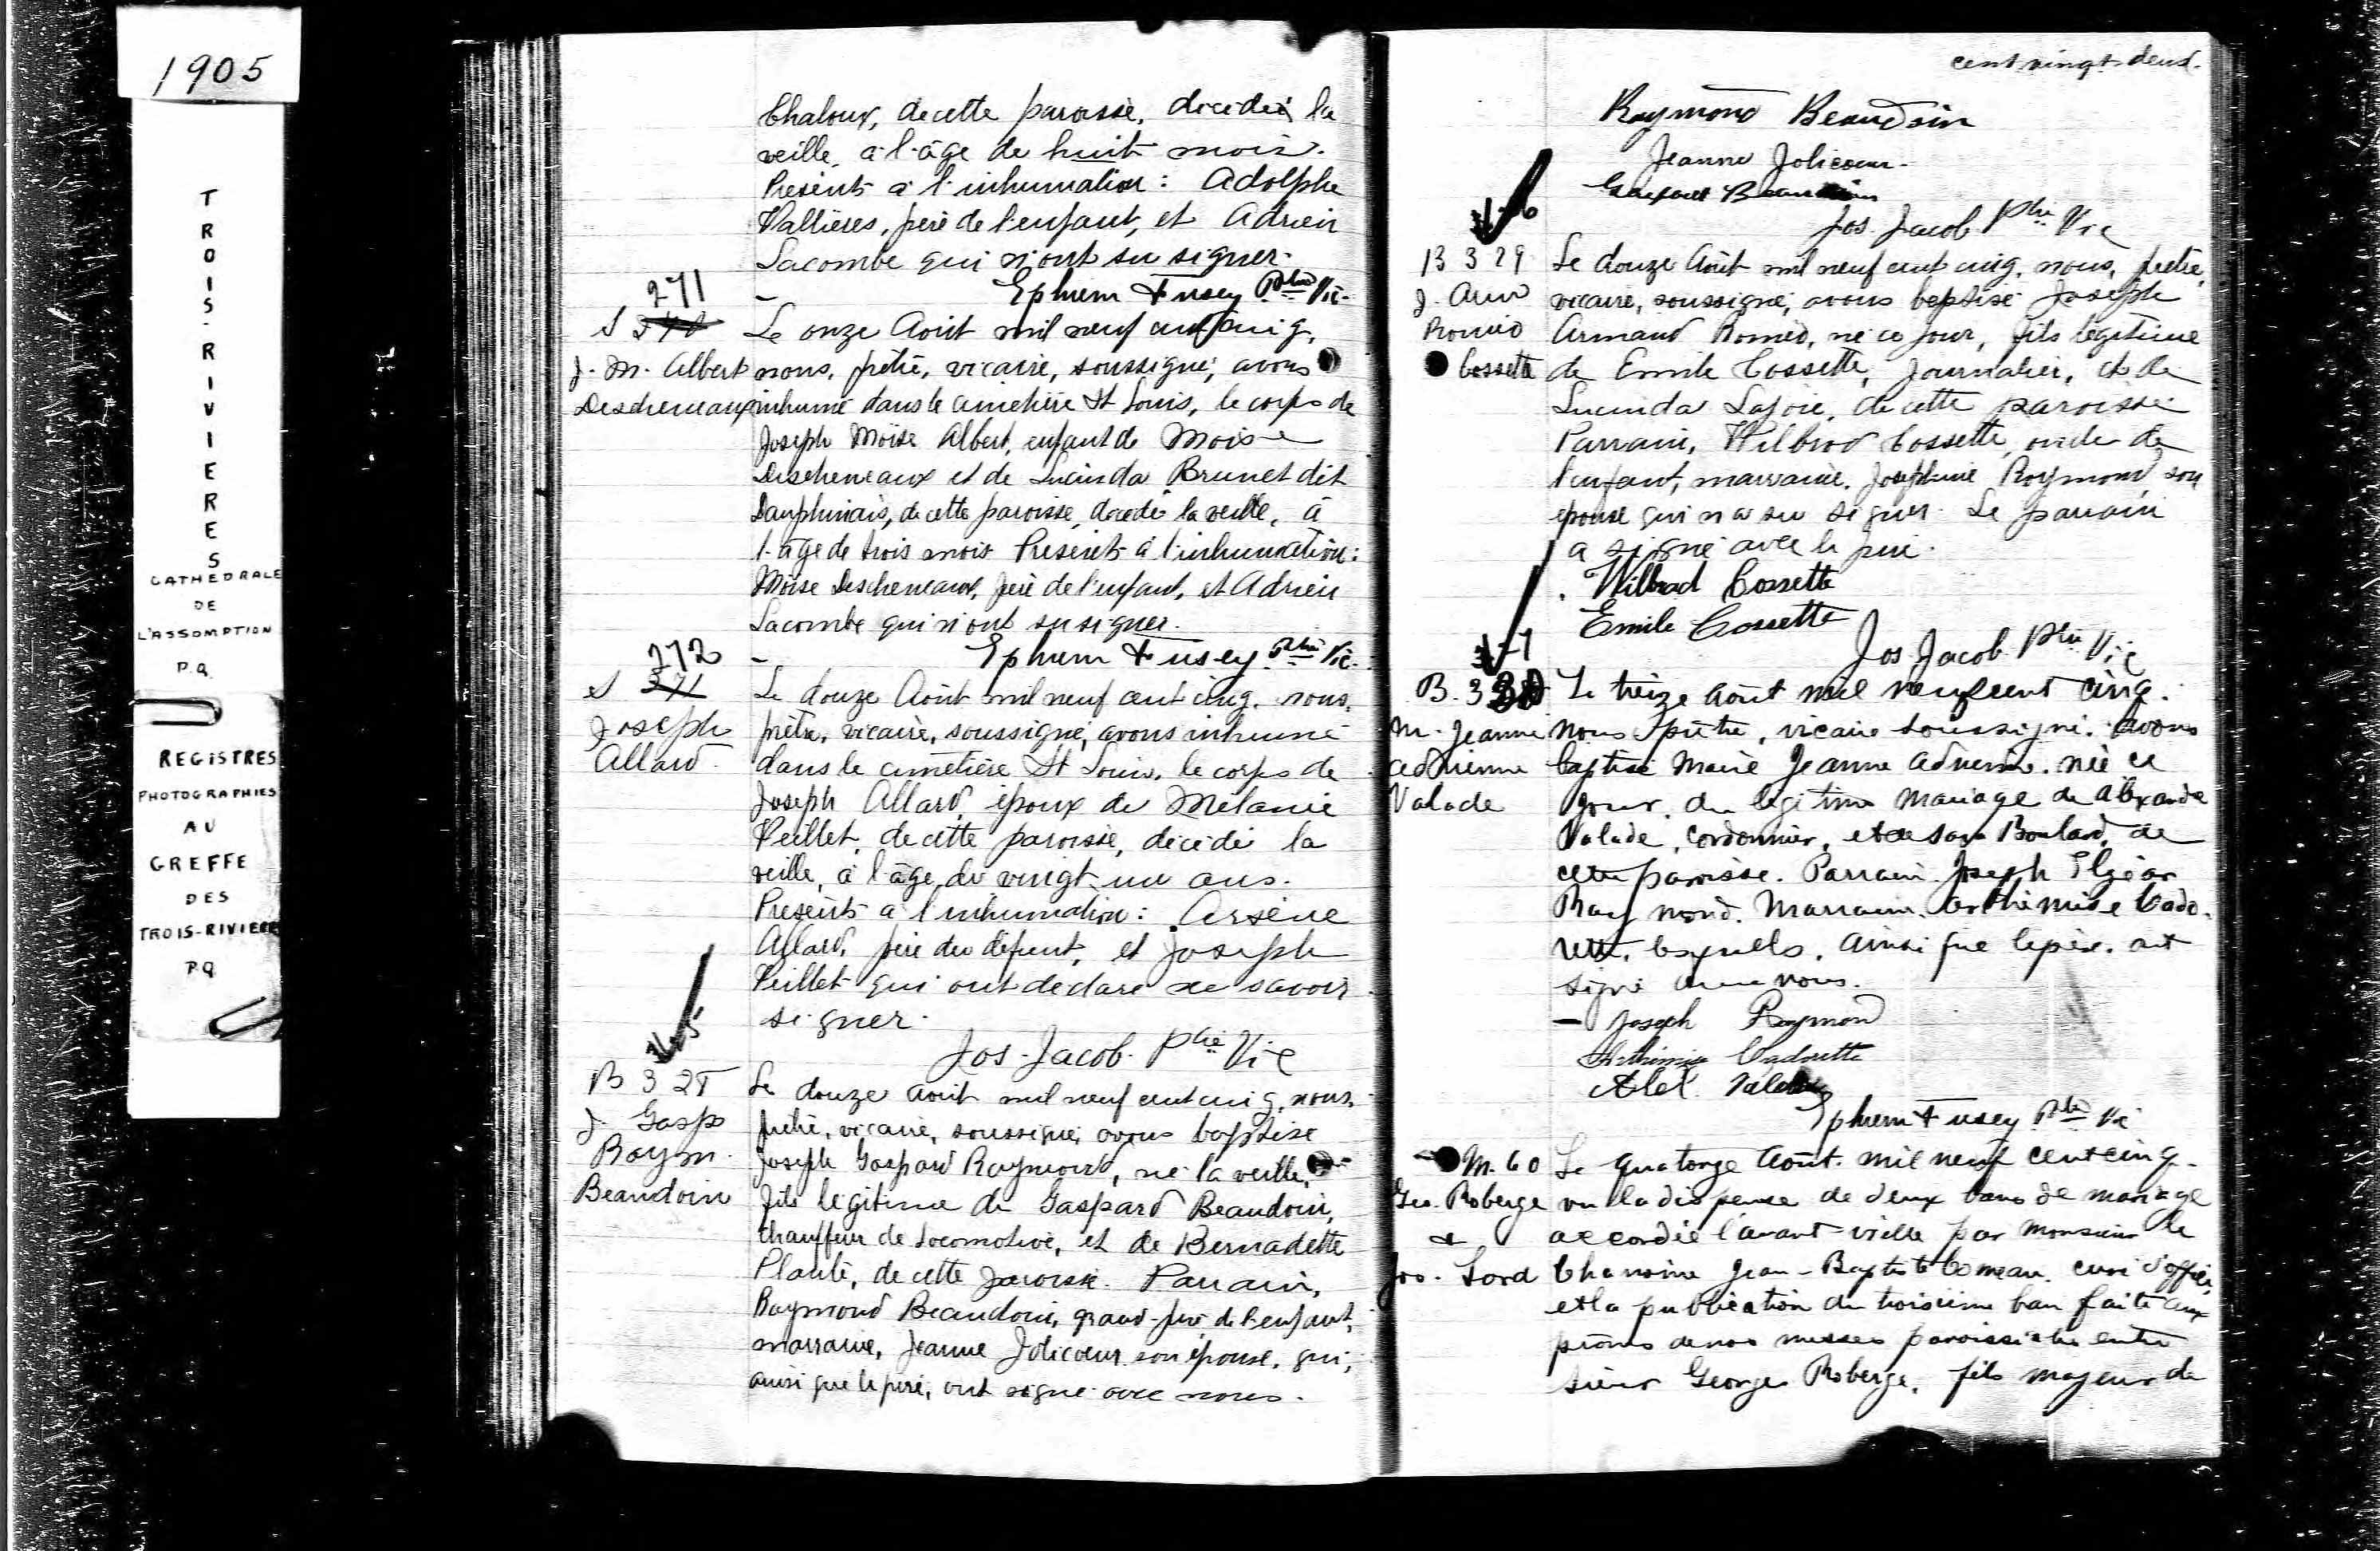 1905
TROIS-RIVIERES
CATHEDRALE
DE
L'ASSOMPTION
P.Q.
REGISTRES
PHOTOGRAPHIES
AU
GREFFE
DES
TROIS-RIVIERES
P.Q.
Chaloux, de cette paroisse, décédé la
veille, à l'âge de huit mois.
Présents à l'inhumation: Adolphe
Vallières, père de l'enfant, et Adrien
Lacombe qui n'ont su signer.
Ephrem Fusey Ptre Vic.
271
S 270
J. M. Albert
Descheneaux
Le onze Août mil neuf cent cinq,
nous, prêtre, vicaire, soussigné, avons
inhumé dans le cimetière St Louis, le corps de
Joseph Moïse Albert, enfant de Moïse
Descheneaux et de Lucinda Brunet dit
Dauphinais, de cette paroisse, décédé la veille, à
l'âge de trois mois Présents à l'inhumation:
Moïse Descheneaux, père de l'enfant, et Adrien
Lacombe qui n'ont su signer.
Ephrem Fusey Ptre Vic.
272
S 271
Joseph
Allard
Le douze Août mil neuf cent cinq, nous,
prêtre, vicaire, soussigné, avons inhumé
dans le cimetière St Louis, le corps de
Joseph Allard, époux de Mélanie
Veillet, de cette paroisse, décédé la
veille, à l'âge de vingt un ans.
Présents à l'inhumation: Arsène
Allard, père du défunt, et Joseph
Veillet qui ont déclaré ne savoir
signer.
Jos. Jacob Ptre Vic
B 328
J. Gasp
Raym.
Beaudoin
Le douze Août mil neuf cent cinq, nous,
prêtre, vicaire, soussigné, avons baptisé
Joseph Gaspard Raymond, né la veille,
fils légitime de Gaspard Beaudoin,
chauffeur de Locomotive, et de Bernadette
Planté, de cette paroisse. Parrain,
Raymond Beaudoin, grand-père de l'enfant,
marraine, Jeanne Jolicoeur son épouse, qui,
ainsi que le père, ont signé avec nous.
cent vingt deux.
Raymond Beaudoin
Jeanne Jolicoeur
Gaspard Beaudoin
Jos. Jacob Ptre Vic
B 329
J. Arm
Roméo
Cossette
Le douze Août mil neuf cent cinq, nous, prêtre,
vicaire, soussigné, avons baptisé Joseph
Armand Roméo, né ce jour, fils légitime
de Emile Cossette, journalier, et de
Lucinda Lajoie, de cette paroisse
Parrain, Wilbrod Cossette, oncle de
l'enfant, marraine, Josephine Raymond, son
épouse qui n'a su signer. Le parrain
a signé avec le père.
Wilbrod Cossette
Emile Cossette
Jos. Jacob Ptre Vic
B. 330
M. Jeanne
Adrienne
Valade
Le treize Août mil neuf cent cinq.
nous prêtre, vicaire soussigné. avons
baptisé Marie Jeanne Adrienne. née ce
jour. du légitime mariage de Alexandre
Valade, cordonnier, et de Sara Boulard, de
cette paroisse. Parrain. Joseph Elzéar
Raymond. Marraine. Arthémise Cado-
rette. lesquels. ainsi que le père. ont
signé avec nous.
Joseph Raymond
Arthémise Cadorette
Alex. Valade
Ephrem Fusey Ptre Vic
M. 60
Geo. Roberge
&
Jos. Lord
Le quatorze Août. mil neuf cent cinq.
vu la dispense de deux bans de mariage
accordée l'avant-veille par Monsieur le
Chanoine Jean-Baptiste Comeau. curé d'office,
et la publication du troisième ban faite aux
prônes de nos messes paroissiales entre
sieur George Roberge, fils majeur de